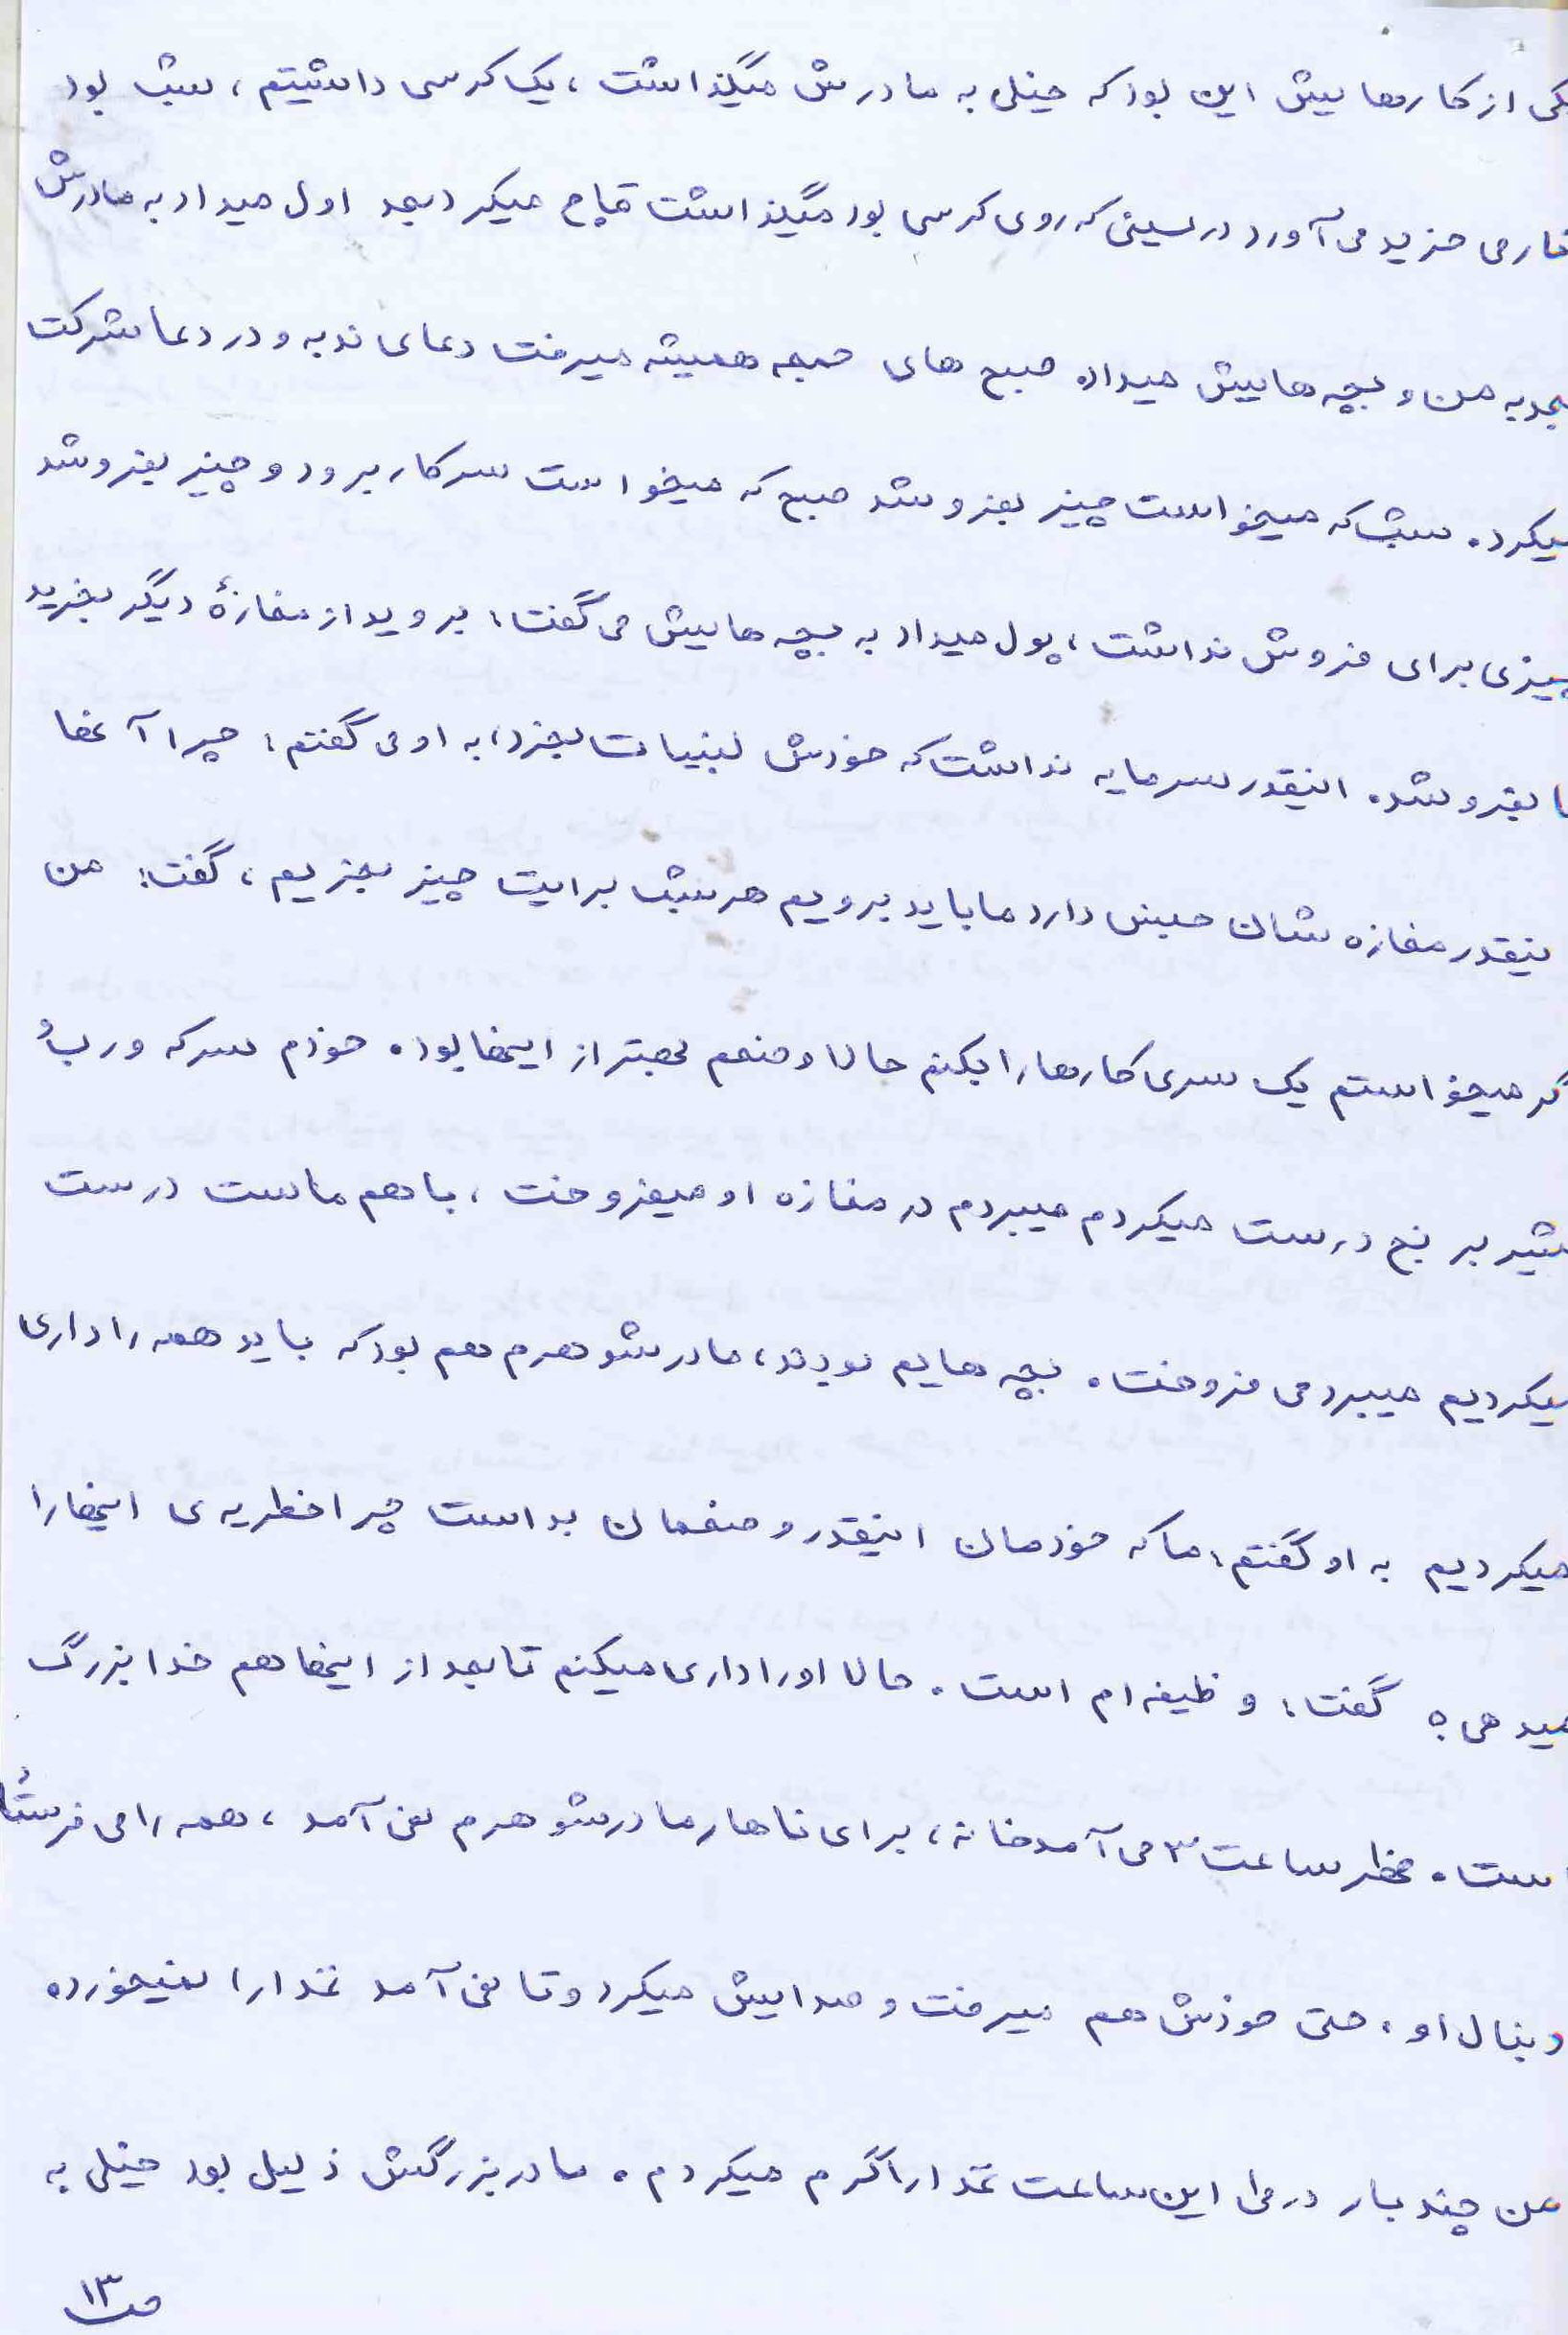 یکی از کارهایش این بود که خیلی به مادرش میگذاشت ، یک کرسی داشتیم ، شب بود
می خرید می آورد در سینی که روی کرسی بود میگذاشت قاچ میکرد بعد اول میداد به مادرش
بعد به من و بچه هایش میداد. صبح های جمعه همیشه میرفت دعای ندبه و در دعا شرکت
میکرد. شب که میخواست چیز بفروشد صبح که میخواست سرکار برود و چیز بفروشد
چیزی برای فروش نداشت ، پول میداد به بچه هایش می گفت: بروید از مغازهٔ دیگر بخرید
تا بفروشد. اینقدر سرمایه نداشت که خودش لبنیات بخرد، به او می گفتم: چرا آنها
اینقدر مغازه شان جنس دارد ما باید برویم هر شب برایت چیز بخریم ، گفت: من
اگر میخواستم یک سری کارها را بکنم حالا وضعم بهتر از اینها بود. خودم سرکه و ربُ و
شیر برنج درست میکردم میبردم در مغازه او میفروخت ، با هم ماست درست
میکردیم میبرد می فروخت. بچه هایم بودند، مادر شوهرم هم بود که باید همه را داری
میکردیم به او گفتم: ما که خودمان اینقدر وضعمان بد است چرا خطریه ی اینها را
میدهی؟ گفت: وظیفه ام است. حالا او را داری میکنم تا بعد از اینها هم خدا بزرگ
است. ظهر ساعت ۳ می آمد خانه ، برای ناهار مادر شوهرم نمی آمد ، همه را می فرستاد
دنبال او ، حتی خودش هم میرفت و صدایش میکرد و تا نمی آمد غذا را نمیخورد.
من چند بار در طی این ساعت غذا را گرم میکردم. مادر بزرگش ذلیل بود خیلی به
ص۱۳